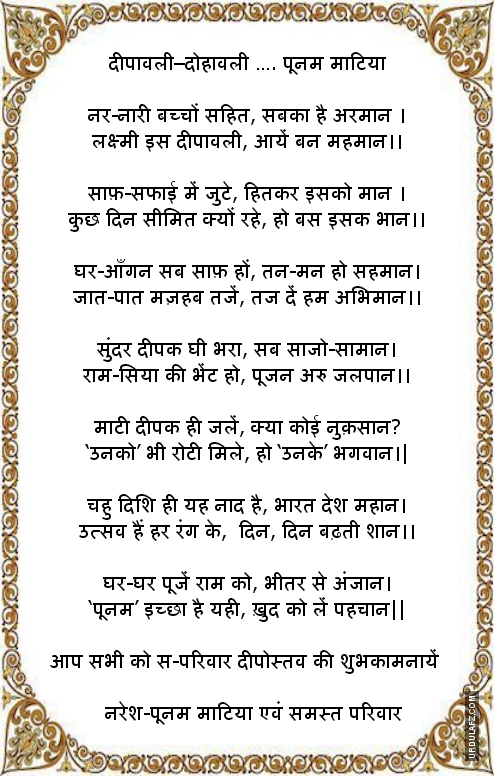 दीपावली–दोहावली .... पूनम माटिया
नर-नारी बच्चों सहित, सबका है अरमान ।
लक्ष्मी इस दीपावली, आयें बन महमान।।
साफ़-सफाई में जुटे, हितकर इसको मान ।
कुछ दिन सीमित क्यों रहे, हो बस इसक भान।।
घर-आँगन सब साफ़ हों, तन-मन हो सहमान।
जात-पात मज़हब तजें, तज दें हम अभिमान।।
सुंदर दीपक घी भरा, सब साजो-सामान।
राम-सिया की भेंट हो, पूजन अरु जलपान।।
माटी दीपक ही जलें, क्या कोई नुक़सान?
‘उनको’ भी रोटी मिले, हो ‘उनके’ भगवान।|
चहु दिशि ही यह नाद है, भारत देश महान।
उत्सव हैं हर रंग के, दिन, दिन बढ़ती शान।।
घर-घर पूजें राम को, भीतर से अंजान।
‘पूनम’ इच्छा है यही, ख़ुद को लें पहचान||
आप सभी को स-परिवार दीपोस्तव की शुभकामनायें
नरेश-पूनम माटिया एवं समस्त परिवार
URDULAFZ.COM